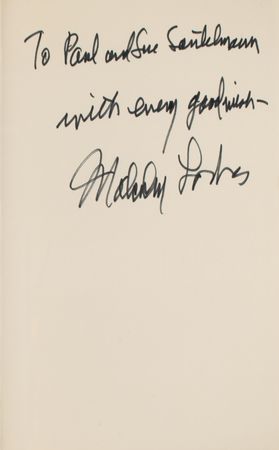 To Paul and Sue
with every good wish—
Malcolm Forbes